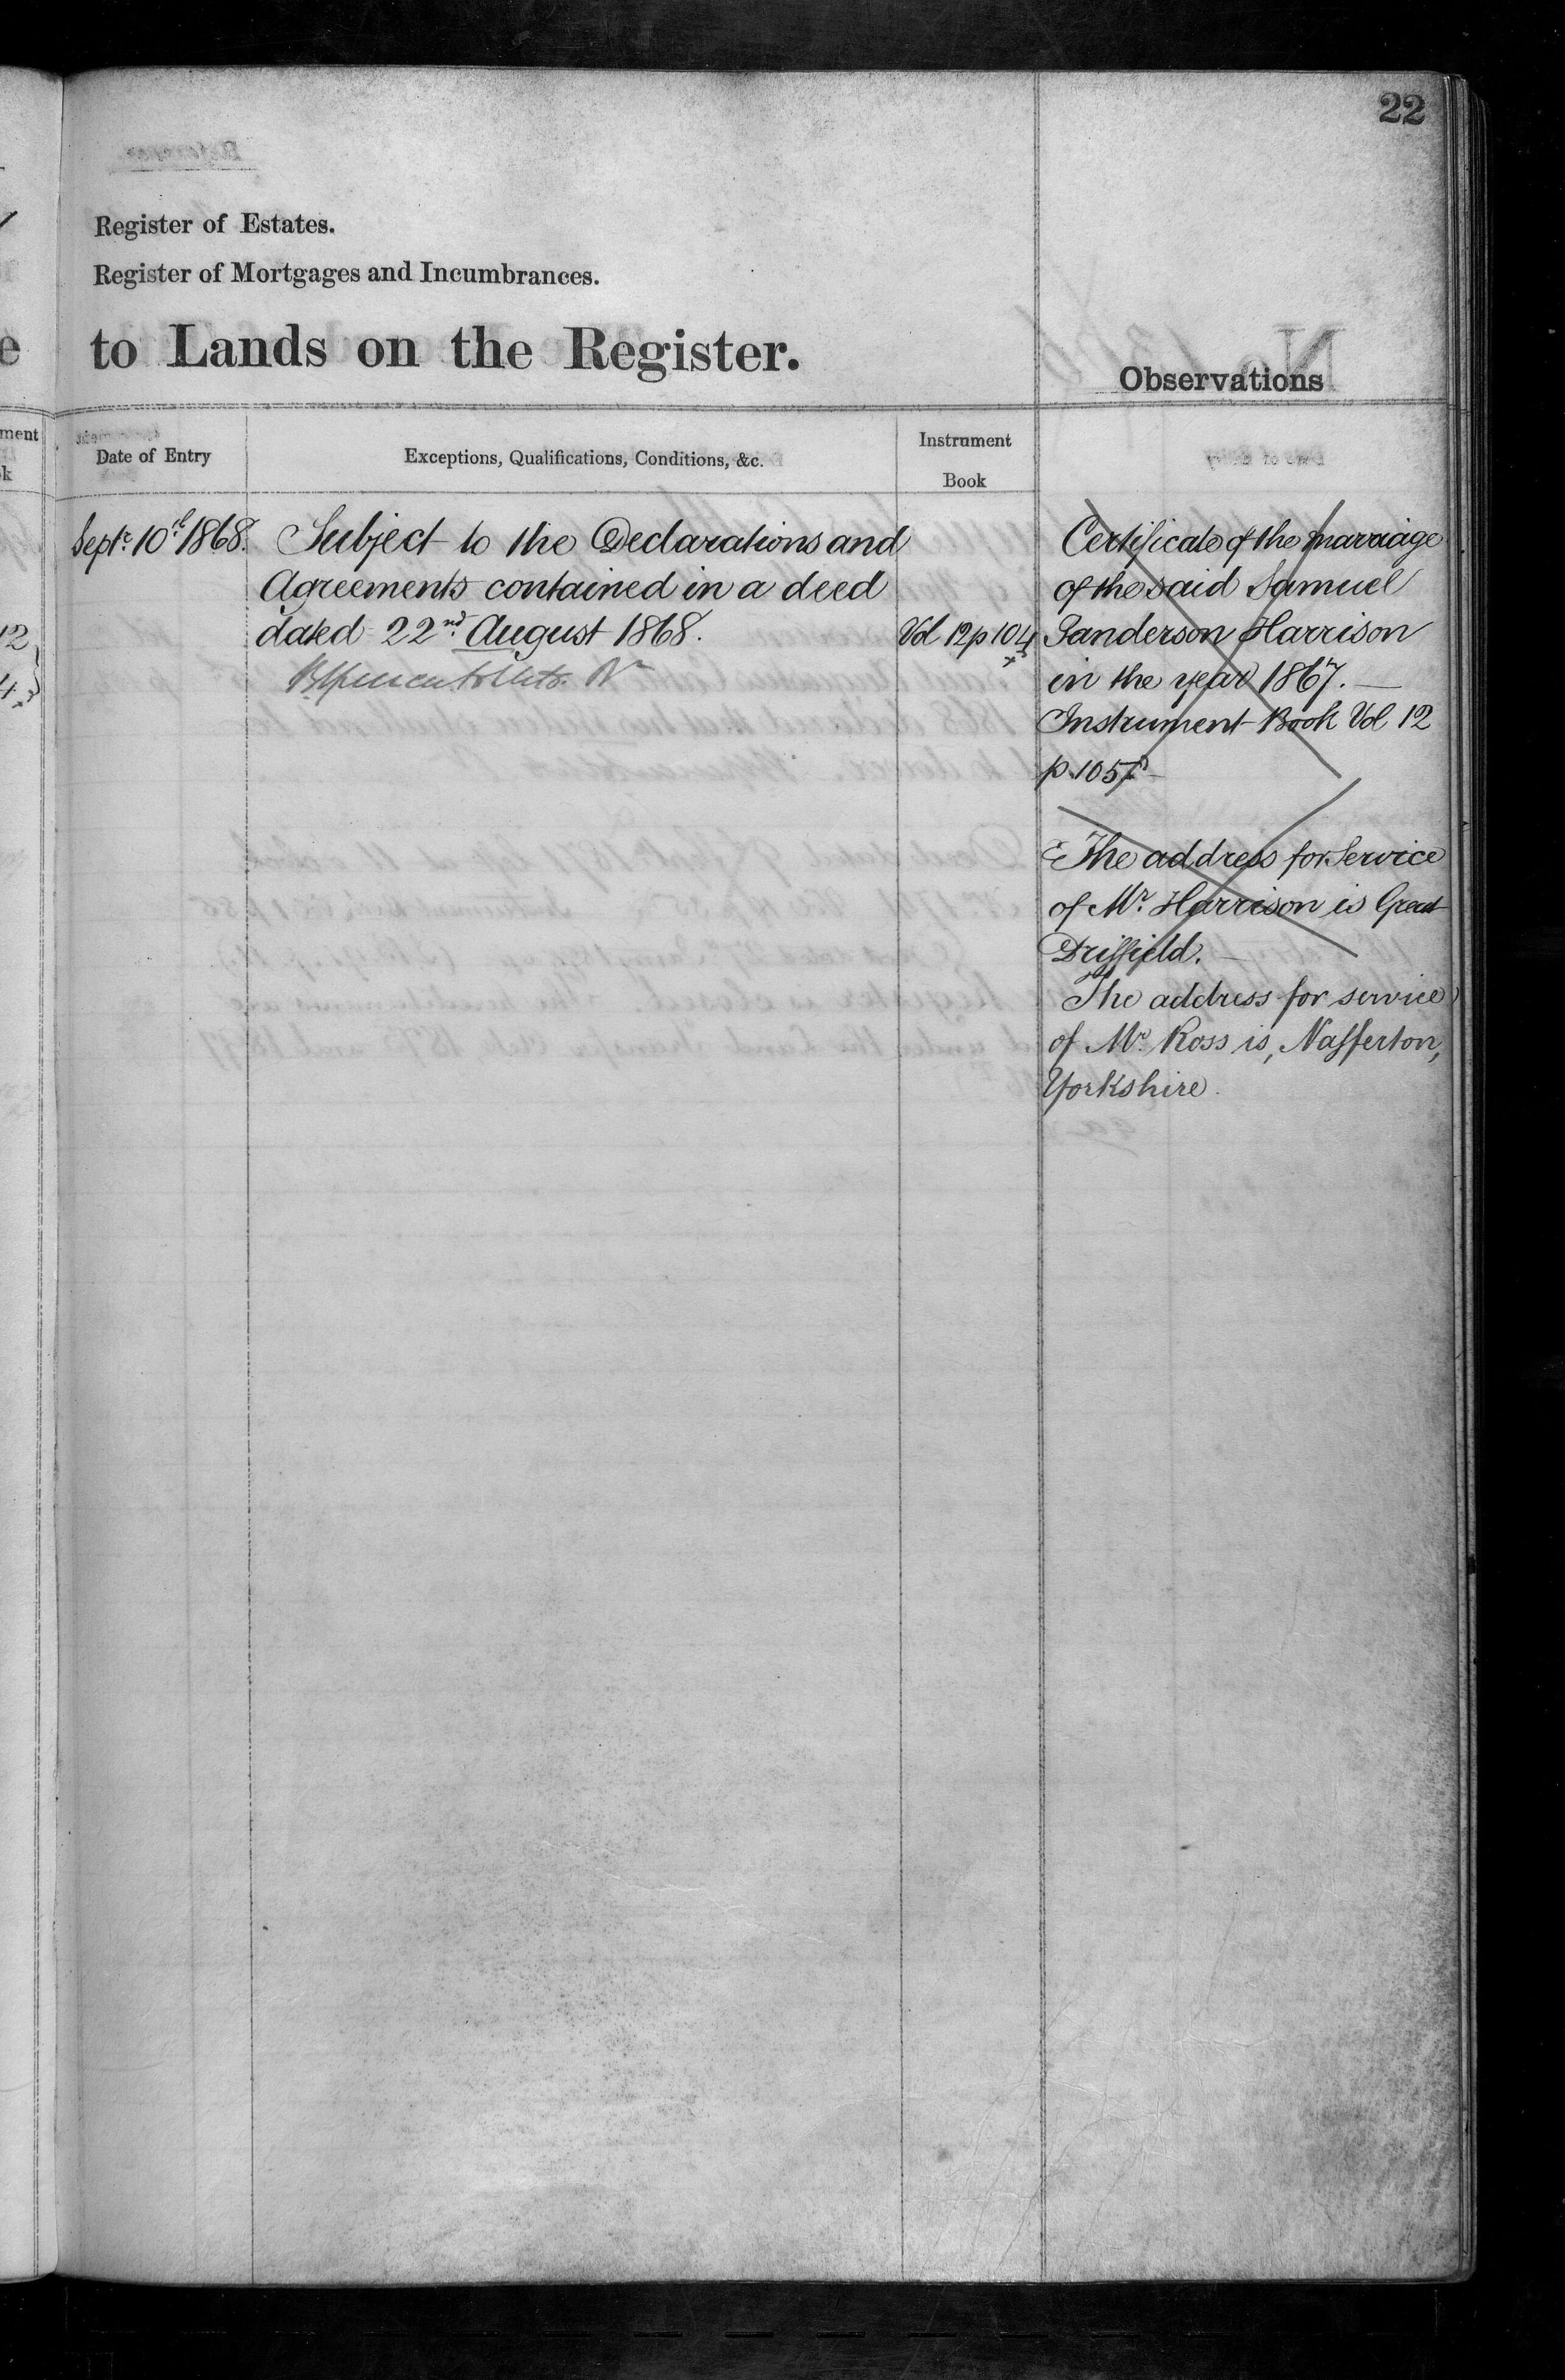 22
Register of Estates.
Register of Mortgages and Incumbrances.
to Lands on the Register.
Observations
Date of Entry
Exceptions, Qualifications, Conditions, &c.
Instrument
Book
Septr. 10th 1868.
Subject to the Declarations and
Agreements contained in a deed
dated 22nd. August 1868.
Vol 12 p 104
Certificate of the marriage
of the said Samuel
Sanderson Harrison
in the year 1867. —
Instrument Book Vol 12
p. 105
The address for Service
of Mr. Harrison is Great
Driffield. —
The address for service
of Mr. Ross is, Nafferton,
Yorkshire.